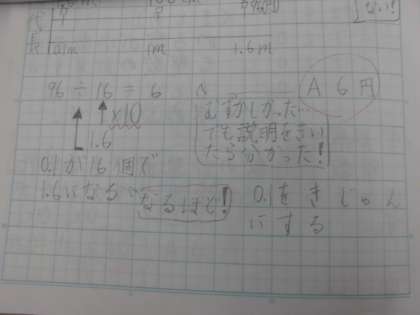 長 0.1m 1m 1.6m
96 ÷ 16 = 6
×10
1.6
A 6円
むずかしかった…
でも説明をきい
たら分かった!
0.1が16個で
1.6になる
なるほど!
0.1をきじゅん
にする